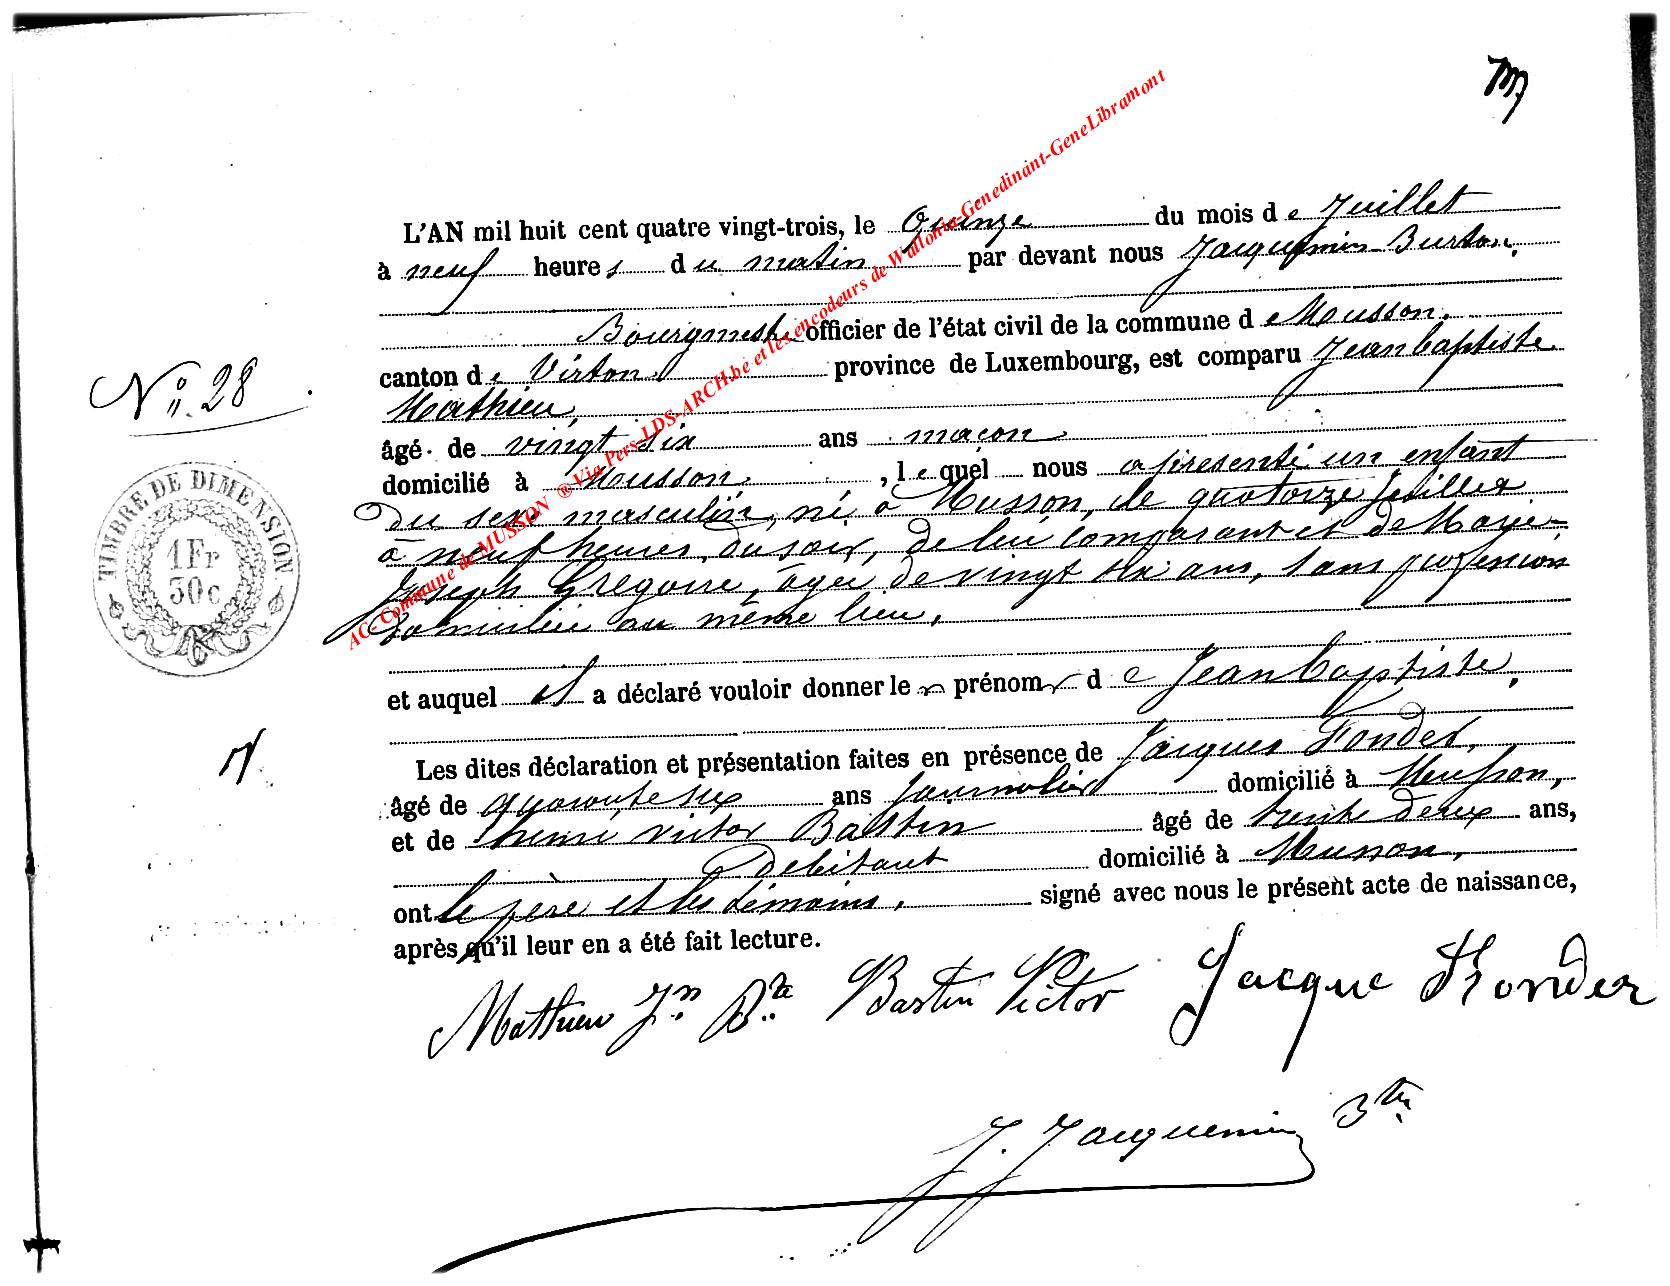 M
L'AN mil huit cent quatre vingt-trois, le Quinze du mois de Juillet
à neuf heures du matin par devant nous Jacquemin Burton,
Bourgmestre officier de l'état civil de la commune de Musson,
canton de Virton province de Luxembourg, est comparu Jean baptiste
Mathieu,
N° 28
âgé de vingt six ans maçon
domicilié à Musson , lequel nous a présenté un enfant
TIMBRE DE DIMENSION
1 Fr
30 c
du sexe masculin, né à Musson, le quatorze Juillet
à neuf heures du soir, de lui comparant et de Marie-
Joseph Grégoire, âgée de vingt six ans, sans profession
domiciliée au même lieu,
et auquel il a déclaré vouloir donner le prénom de Jean baptiste,
Les dites déclaration et présentation faites en présence de Jacques Fonder,
âgé de quarante six ans Journalier domicilié à Musson,
et de victor Bastin âgé de trente deux ans,
Débitant domicilié à Musson,
ont le père et les témoins, signé avec nous le présent acte de naissance,
après qu'il leur en a été fait lecture.
Mathieu Jn Bte Bastin Victor Jacque Fonder
J. Jacquemin Btn
AC- Commune de MUSSON ® Via Pers-LDS-ARCH.be et les encodeurs de Wallonia-Genedinant-GeneLibramont